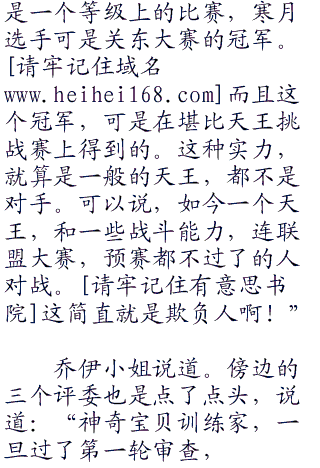 是一个等级上的比赛，寒月
选手可是关东大赛的冠军。
[请牢记住域名
www.heihei168.com]而且这
个冠军，可是在堪比天王挑
战赛上得到的。这种实力，
就算是一般的天王，都不是
对手。可以说，如今一个天
王，和一些战斗能力，连联
盟大赛，预赛都不过了的人
对战。[请牢记住有意思书
院]这简直就是欺负人啊！”
乔伊小姐说道。傍边的
三个评委也是点了点头，说
道：“神奇宝贝训练家，一
旦过了第一轮审查，